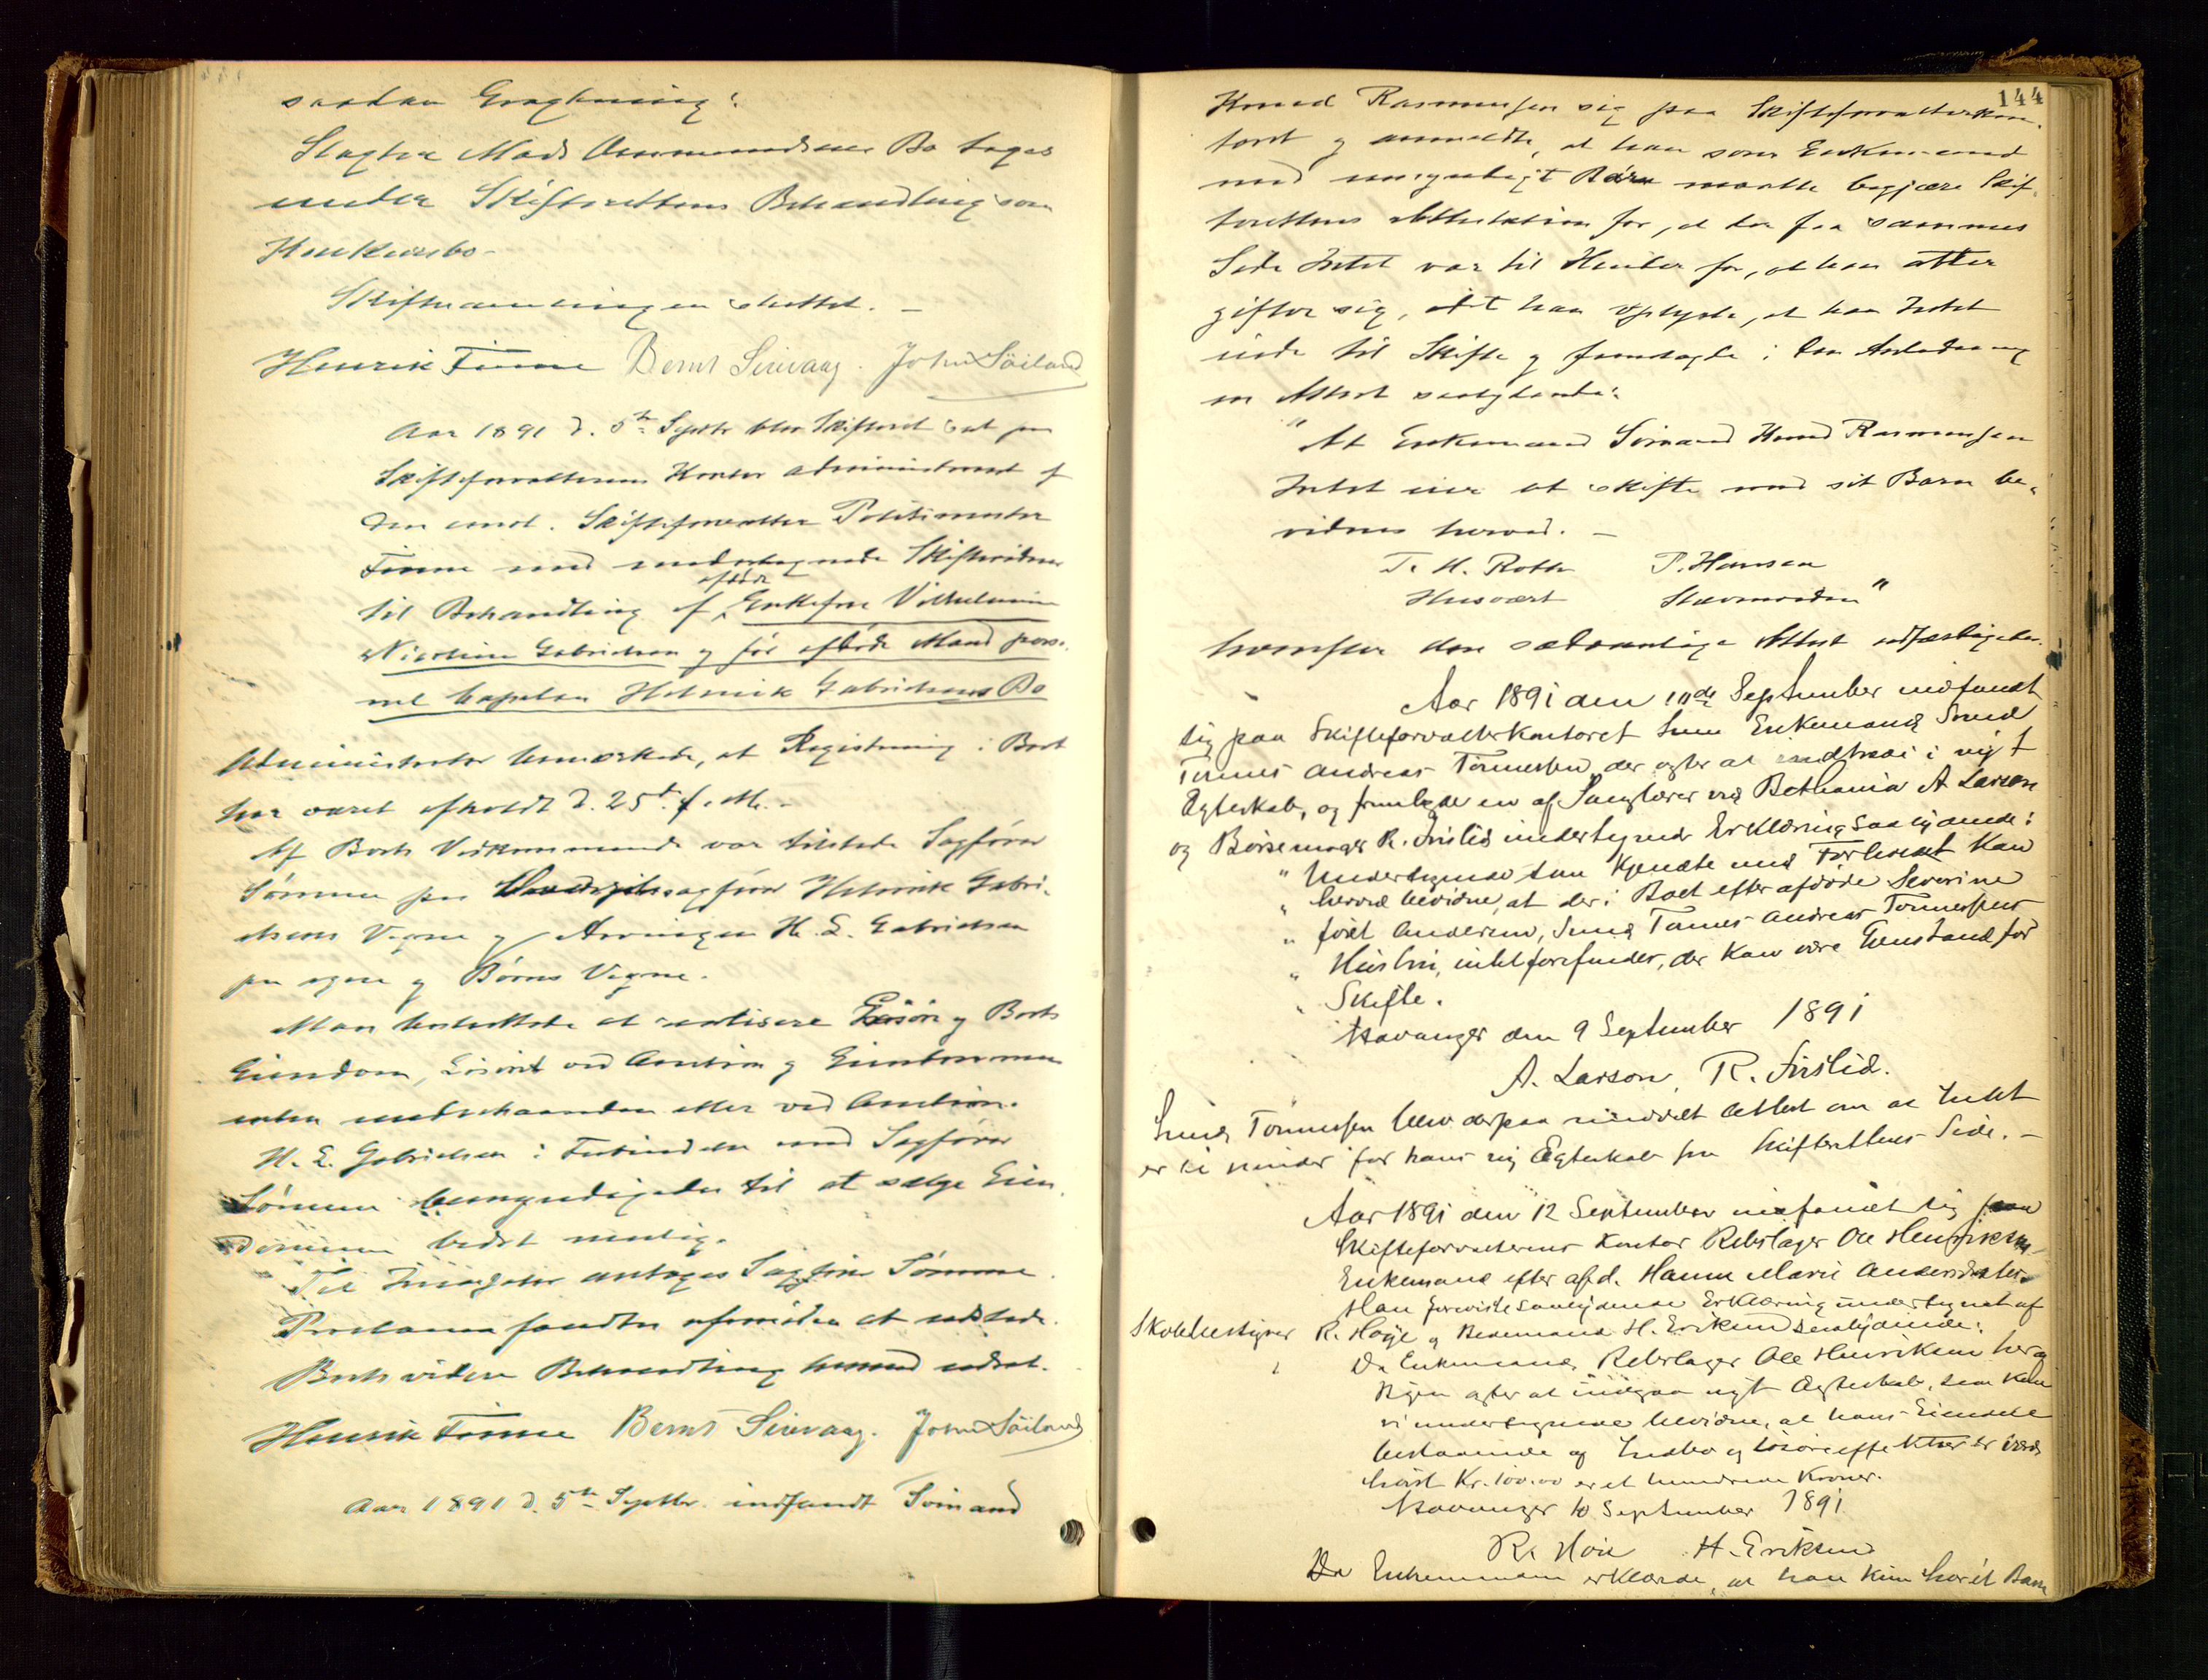 saadan
Slagter Mads Ommundsens Bo tages
under Skifterettens Behandling som
Konkursbo.
Skiftesamlingen sluttet. —
Henrik Finne Bernt Sirevaag. John Söiland
Aar 1891 d. 5te Septbr blev Skifteret sat paa
Skifteforvalterens Kontor administreret af
den const. Skifteforvalter Politimester
Finne med undertegnede Skiftevidner
til Behandling af afdøde Enkefrue Vilhelmine
Nicoline Gabrielsen og før afdøde Mand
Capelan Helmik Gabrielsens Bo
Administrator bemærkede, at Registrering i Boet
har været afholdt d. 25de f. M. —
Af Boets Vedkommende var tilstede Sagfører
Sømme paa sagfører Helmik Gabri-
elsens Vegne og Arvingen H. E. Gabrielsen
paa egne og Børns Vegne.
Man besluttede at realisere Løsøre og Boets
Eiendom, Løsøret ved Auction og Eiendommen
enten underhaanden eller ved Auction.
H. E. Gabrielsen i Forbindelse med Sagfører
Sømme bemyndigedes til at sælge Eien-
dommen bedst mulig.
Til Incassator antoges Sagfører Sømme.
Proclama fandtes ufornøden at udstede.
Boets videre Behandling hermed udsat.
Henrik Finne Bernt Sirevaag. John Söiland
Aar 1891 d. 5te Septbr. indfandt Sømand
144
Knud Rasmussen sig paa Skifteforvalterkon-
toret og anmeldte, at han som Enkemand
med umyndigt Barn maatte begjære Skif-
terettens Attestation for, at der fra sammes
Side Intet var til Hinder for, at han atter
gifter sig, idet han oplyste, at han Intet
eiede til Skifte og fremlagde i den Anledning
en Attest saalydende:
"At Enkemand Sømand Knud Rasmussen
Intet eier at skifte med sit Barn be-
vidnes herved. —
T. H. Roth P. Hansen
Husvært Stevnevidne"
hvorefter den sædvanlige Attest udfærdigedes.
Aar 1891 den 10de September indfandt
sig paa Skifteforvalterkontoret Enkemand Smed
Tønnes Andreas Tønnessen, der agter at indtræde i nyt
Ægteskab, og fremlagde en af Sanglærer ved Bethania A Larson
og Børsemager R. Firslid undertegnet Erklæring saalydende:
" Undertegnede som kjendte med Forholdet kan
" herved bevidne, at der i Boet efter afdøde Severine
" født Andersen, Smed Tønnes Andreas Tønnessens
" Hustru, intet forefindes, der kan være Gjenstand for
" Skifte.
Stavanger den 9 September 1891
A. Larson, R. Firslid.
Smed Tønnessen blev derpaa meddelt Attest om at Intet
er til Hinder for hans ny Ægteskab fra Skifterettens Side. —
Aar 1891 den 12 September indfandt sig paa
Skifteforvalterens Kontor Rebslager Ole Henriksen
Enkemand efter afd. Hanne Marie Andersdatter.
Han foreviste saalydende Erklæring undertegnet af
Skolebestyrer R. Høye og Bedemand H. Eriksen saalydende:
Da Enkemand, Rebslager Ole Henriksen her af
Byen agter at indgaa nyt Ægteskab, saa kan
vi undertegnede bevidne, at hans Eiendele
bestaaende af Indbo og Løsøreeffekter er værd
høist Kr. 100.00 er et hundrede Kroner.
Stavanger 10 September 1891
R. Høie H. Eriksen
Da Enkemanden erklærede, at han kun har et Barn